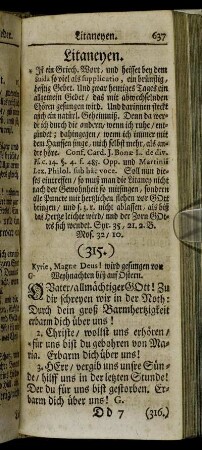 Litaneyen. 637
Litaneyen.
* Ist ein Griech. Wort, und heisset bey dem
Suida so viel als supplicatio, ein brünstig-
hefftig Gebet. Und zwar heutiges Tages ein
allgemein Gebet, das mit abwechselnden
Chören gesungen wird. Und darinnen steckt
auch ein natürl. Geheimniß. Denn da wer-
de ich durch die andern, wenn ich ruhe, ent-
zündet; dahingegen, wenn ich immer mit
dem Hauffen singe, mich selbst mehr, als an-
dre höre. Conf. Card. J. Bonæ l. de div.
Ps. c. 14. §. 4. f. 485. Opp. und Martinii
Lex. Philol. sub hâc voce. Soll nun die-
ses eintreffen, so muß man die Litaney nicht
nach der Gewohnheit so mitsingen, sondern
alle Puncte mit hertzlichem flehen vor GOtt
bringen, und s. z. r. nicht ablassen, als biß
das Hertze leichter wird, und der Zorn GOt-
tes sich wendet. Syr. 35, 21. 2. B.
Mos. 32, 10.
(315.)
Kyrie, Magne Deus! wird gesungen von
Weyhnachten biß auf Ostern.
O Vater, allmächtiger GOtt! Zu
dir schreyen wir in der Noth:
Durch dein groß Barmhertzigkeit
erbarm dich über uns!
2. Christe, wollst uns erhören,
für uns bist du gebohren von Ma-
ria. Erbarm dich über uns!
3. HErr, vergib uns unsre Sün-
de, hilff uns in der letzten Stunde!
Der du für uns bist gestorben. Er-
barm dich über uns! G.
D d 7 (316.)